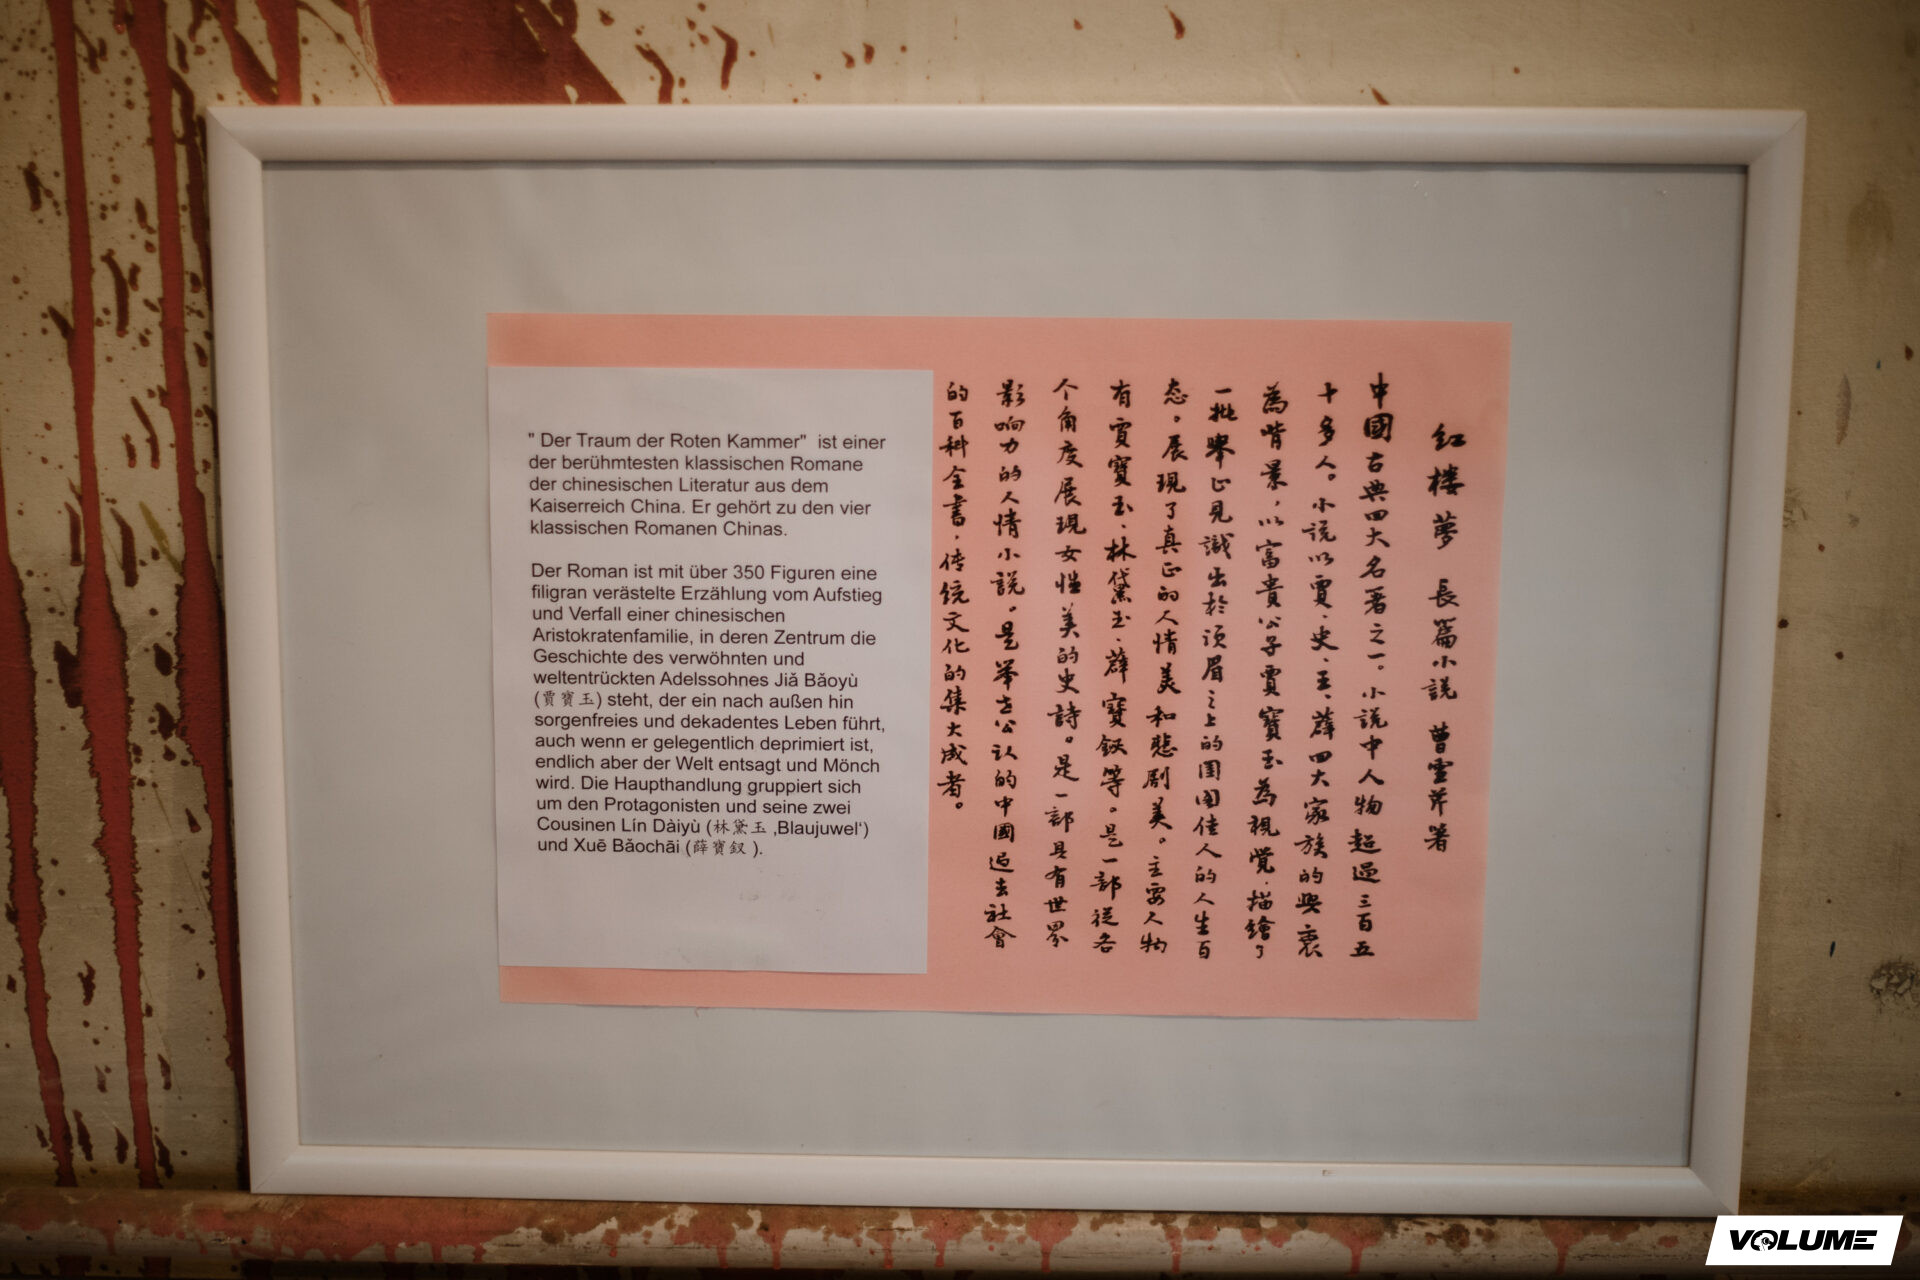 " Der Traum der Roten Kammer" ist einer
der berühmtesten klassischen Romane
der chinesischen Literatur aus dem
Kaiserreich China. Er gehört zu den vier
klassischen Romanen Chinas.
Der Roman ist mit über 350 Figuren eine
filigran verästelte Erzählung vom Aufstieg
und Verfall einer chinesischen
Aristokratenfamilie, in deren Zentrum die
Geschichte des verwöhnten und
weltentrückten Adelssohnes Jiǎ Bǎoyù
(賈寶玉) steht, der ein nach außen hin
sorgenfreies und dekadentes Leben führt,
auch wenn er gelegentlich deprimiert ist,
endlich aber der Welt entsagt und Mönch
wird. Die Haupthandlung gruppiert sich
um den Protagonisten und seine zwei
Cousinen Lín Dàiyù (林黛玉 ‚Blaujuwel‘)
und Xuē Bǎochāi (薛寶釵 ).
红楼夢 長篇小説 曹雪芹著
中國古典四大名著之一。小説中人物超過三百五
十多人。小説以賈、史、王、薛四大家族的興衰
為背景，以富貴公子賈寶玉為視覚.描繪了
一批舉止見識出於须眉之上的闺阁佳人的人生百
态。展現了真正的人情美和悲剧美。主要人物
有賈寶玉、林黛玉、薛寶釵等。是一部從各
个角度展現女性美的史詩。是一部具有世界
影响力的人情小説。是举世公认的中國過去社會
的百科全書.传统文化的集大成者。
VOLUME